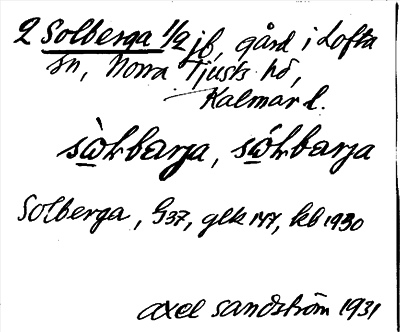 2 Solberga 1/2 jb, gård i Lofta
sn, Norra Tjusts hd,
Kalmar l.
sὼlbarja, sώlbarja
Solberga, G37, glk 144, kb 1930
axel sandström 1931